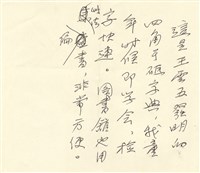 這是王雲五發明的
四角號碼字典，我童
年時候即學會，檢
字快速。圖書館也用
書，非常方便。